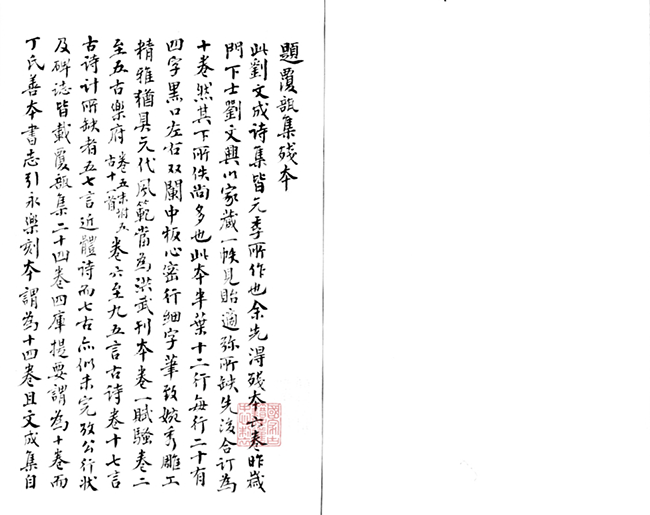 題覆瓿集殘本
此劉文成詩集皆元季所作也余先得殘本六卷昨歲
門下士劉文興以家藏一帙見貽適弥所缺先後合訂為
十卷然其下所佚尚多也此本半葉十二行每行二十有
四字黑口左右双闌中板心密行細字筆致婉秀雕工
精雅猶具元代風範當為洪武刊本卷一賦騷卷二
至五古樂府卷五末附五古十一首卷六至九五言古詩卷十七言
古詩計所缺者五七言近體詩而七古亦似未完攷公行狀
及碑誌皆載覆瓿集二十四卷四庫提要謂為十卷而
丁氏善本書志引永樂刻本謂為十四卷且文成集自